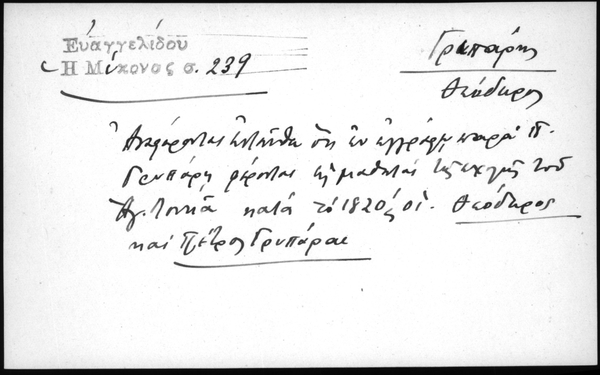 Εὐαγγελίδου
Ἡ Μύκονος σ. 239
Γρυπάρης
Θεόδωρος
Ἀναφέρονται ἐνταῦθα ὅτι ἐν ἐγγράφῳ παρὰ Π.
Γρυπάρῃ φέρονται ὡς μαθηταὶ τῆς σχολῆς τοῦ
Ἁγ. κατὰ τὸ 1820 οἱ Θεόδωρος
καὶ Πέτρος Γρυπάραι